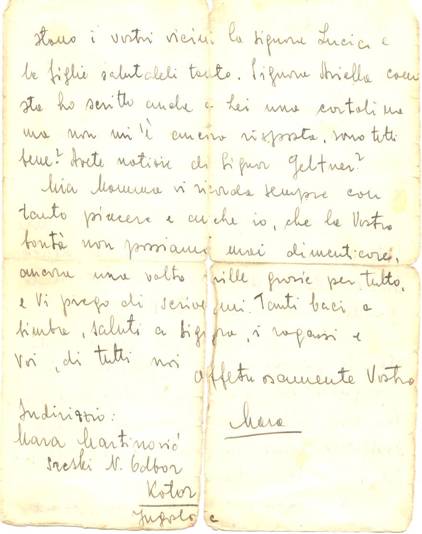 stanno i vostri vicini la signora Lucia e
le figlie salutateli tanto. Signora Ariella come
sta ho scritto anche a Lei una cartolina
ma non mi è ancora risposta, sono tutti
bene? Avete notizie di Signor Geltner?
Mia Mamma vi ricorda sempre con
tanto piacere e anche io, che la Vostra
bontà non possiamo mai dimenticare,
ancora una volta mille grazie per tutto,
e Vi prego di scrivermi. Tanti baci a
saluti a i ragazzi e
Voi, di tutti noi
affetuosamente Vostra
Mara
Indirizzo:
Mara Martinović
Sreski N. Odbor
Kotor